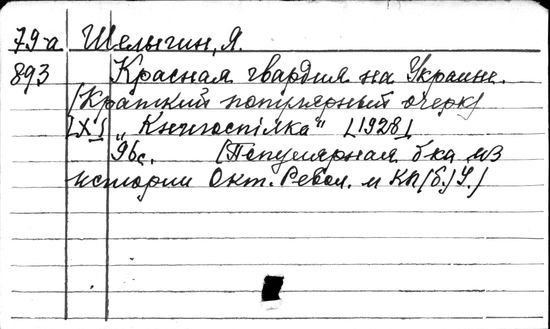 79-а Шелыгин, Я.
893 Красная гвардия на Украине.
(Краткий популярный очерк)
[Х.] "Книгоспiлка" [1928].
96с. (Популярная б-ка из
истории Окт. Револ. и КП(б.)У.)